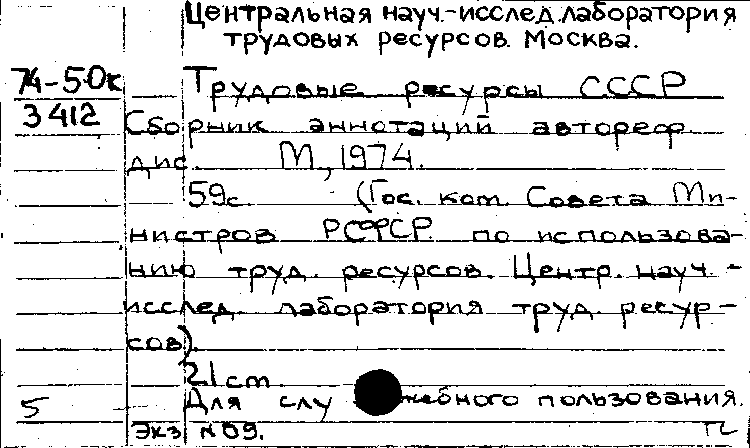 Центральная науч.-исслед.лаборатория
трудовых ресурсов. Москва.
74-5.0к
3412
Трудовые ресурсы СССР
Сборник аннотаций автореф.
дис. М., 1974.
59с. (Гос. ком. Совета Ми-
нистров РСФСР по использова-
нию труд. ресурсов. Центр. науч.-
исслед. лаборатория труд. ресур-
сов).
21 cm.
5 Для служебного пользования.
Экз N 09.